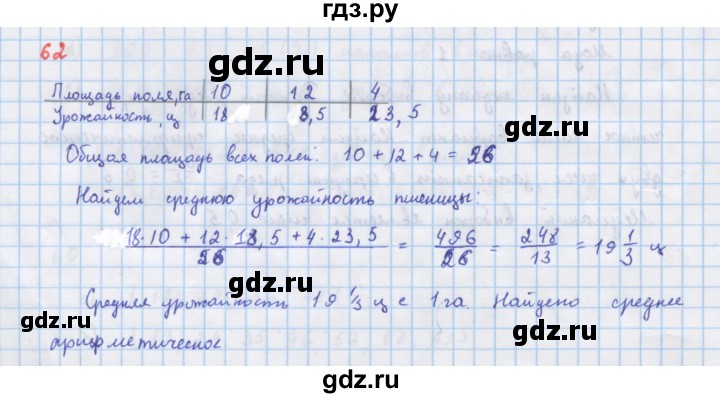 гдз.ру
62
Площадь поля, га | 10 | 12 | 4
Урожайность, ц | 18 | 8,5 | 23,5
Общая площадь всех полей: 10 + 12 + 4 = 26
Найдем среднюю урожайность пшеницы:
18·10 + 12·18,5 + 4·23,5 / 26 = 496/26 = 248/13 = 19 1/3 ц
Средняя урожайность 19 1/3 ц с 1 га. Найдено среднее
арифметическое
gdz.ru gdz.ru gdz.ru
gdz.ru gdz.ru gdz.ru
gdz.ru gdz.ru gdz.ru
gdz.ru gdz.ru gdz.ru